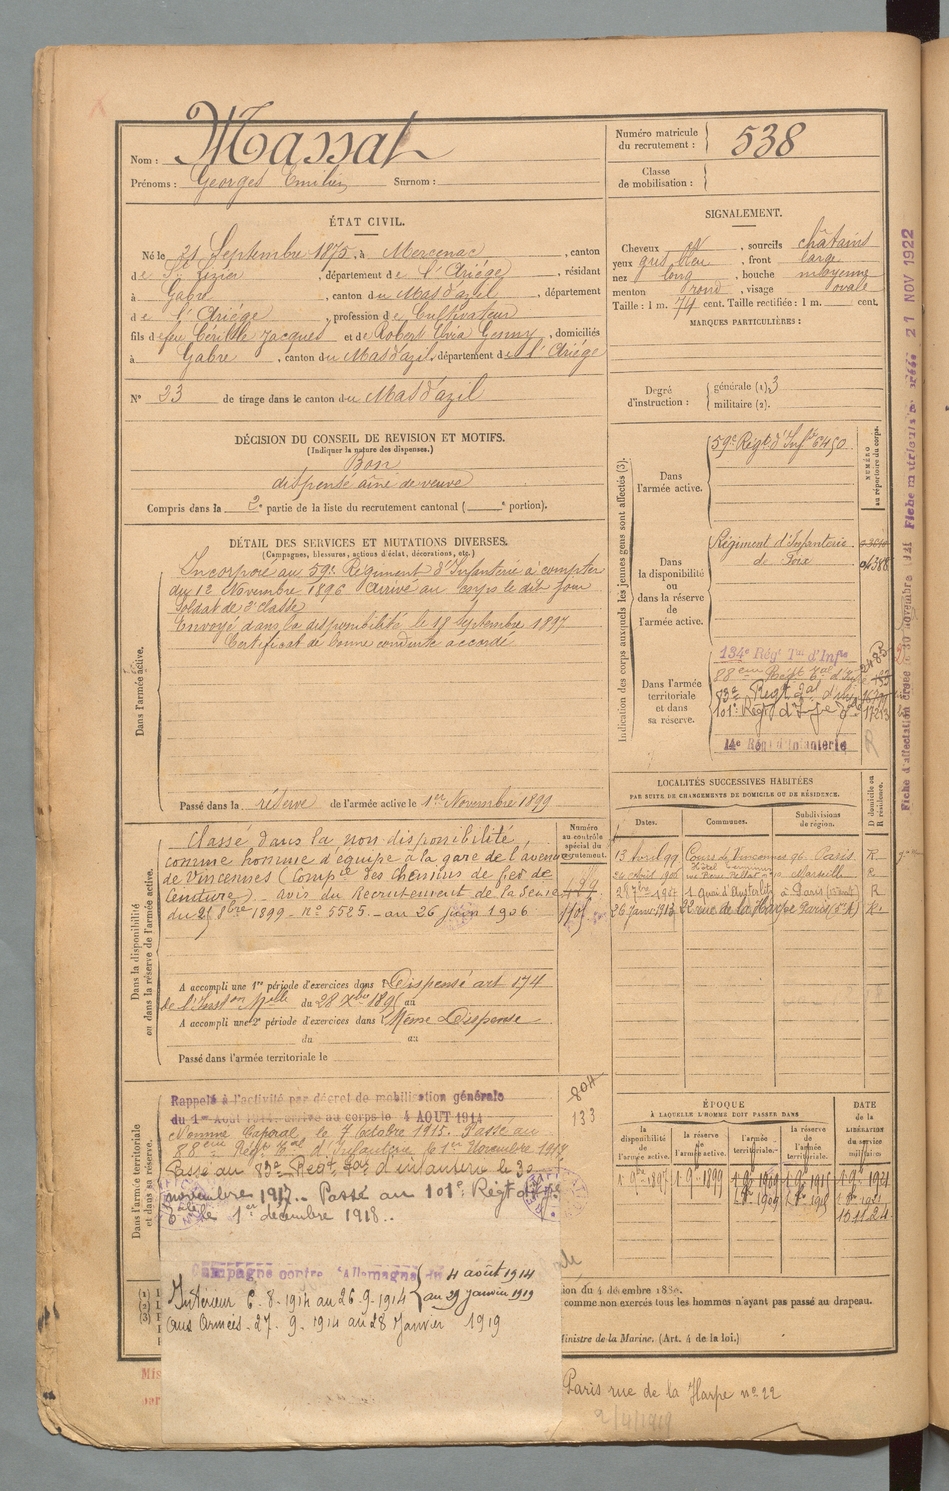 Nom : Massat
Prénoms : Georges Emilien Surnom :
Numéro matricule du recrutement : 538
Classe de mobilisation :
ÉTAT CIVIL.
Né le 21 Septembre 1875, à Mercenac, canton
de St Lizier, département de l'Ariége, résidant
à Gabre, canton du Mas d'azil, département
de l'Ariége, profession de Cultivateur
fils de feu Jacques et de Robert Jenny, domiciliés
à Gabre, canton du Mas d'azil, département de l'Ariége
N° 23 de tirage dans le canton du Mas d'azil
SIGNALEMENT.
Cheveux , sourcils châtains
yeux gris bleu, front large
nez long, bouche moyenne
menton rond, visage ovale
Taille : 1 m. 74 cent. Taille rectifiée : 1 m. cent.
MARQUES PARTICULIÈRES :
Degré d'instruction : générale (1). 3
militaire (2).
DÉCISION DU CONSEIL DE REVISION ET MOTIFS.
(Indiquer la nature des dispenses.)
Bon
dispensé aîné de veuve
Compris dans la 2e partie de la liste du recrutement cantonal ( e portion).
DÉTAIL DES SERVICES ET MUTATIONS DIVERSES.
(Campagnes, blessures, actions d'éclat, décorations, etc.)
Dans l'armée active.
Incorporé au 59e Régiment d'Infanterie à compter
du 12 Novembre 1896 Arrivé au corps le dit jour
Soldat de 2e classe
Envoyé dans la disponibilité le 18 Septembre 1897
Certificat de bonne conduite accordé
Passé dans la réserve de l'armée active le 1er Novembre 1899
Indication des corps auxquels les jeunes gens sont affectés (3).
NUMÉRO au répertoire du corps.
Dans l'armée active.
59e Régt d'Infie 6450
Dans la disponibilité ou dans la réserve de l'armée active.
Régiment d'Infanterie
de Foix
Dans l'armée territoriale et dans sa réserve.
134e Rég. Tal d'Infie
88eme Régt Tal d'Infie
83e Régt Tal d'Inf
101e Régt d'Infie
14e Rég. d'Infanterie
Fiche matricule créée 21 NOV 1922
Fiche d'affectation créée le 30 novembre
Dans la disponibilité ou dans la réserve de l'armée active.
Numéro au contrôle spécial du recrutement.
Classé dans la non disponibilité
comme homme d'équipe à la gare de l'avenue
de Vincennes (Compie des Chemins de fer de
Ceinture) avis du Recrutement de la Seine
du 21 8bre 1899 - no 5525 - au 26 juin 1906
A accompli une 1re période d'exercices dans Dispensé art 174
de l'Inston Mlle du 28 Xbre 1895 au
A accompli une 2e période d'exercices dans Même Dispense
du au
Passé dans l'armée territoriale le
LOCALITÉS SUCCESSIVES HABITÉES
PAR SUITE DE CHANGEMENTS DE DOMICILE OU DE RÉSIDENCE.
Dates. Communes. Subdivisions de région. D domicile ou R résidence.
13 Avril 99 Cours de Vincennes 96 Paris R
Hôtel Terminus
24 Août 906 Marseille R
1 Quai d'Austerlitz à Paris R
26 Janv 1913 22 rue de la Harpe Paris (5e A) R
Dans l'armée territoriale et dans sa réserve.
Rappelé à l'activité par décret de mobilisation générale
du 1er Août 1914. arrivé au corps le 4 AOUT 1914
133
Nommé Caporal le 7 Octobre 1915. Passé au
88eme Régt Tal d'Infanterie le 1er Novembre 1917
Passé au 83e Régt Tal d'infanterie le 30
novembre 1917.. Passé au 101e Régt d'Infie
le 1er décembre 1918..
Campagne contre l'Allemagne du 4 août 1914
au 29 janvier 1919
Intérieur 6-8-1914 au 26.9.1914
aux Armées - 27.9.1914 au 28 Janvier 1919
ÉPOQUE
À LAQUELLE L'HOMME DOIT PASSER DANS
la disponibilité de l'armée active.
la réserve de l'armée active.
l'armée territoriale.
la réserve de l'armée territoriale.
DATE de la LIBÉRATION du service militaire
1 9bre 1897 1 9 1899 1 9bre 1909 1 9 1915 1 9 1921
1er 8bre 1909
15.11.24
comme non exercés tous les hommes n'ayant pas passé au drapeau.
Ministre de la Marine. (Art. 4 de la loi.)
Paris rue de la Harpe no 22
2/4/1919